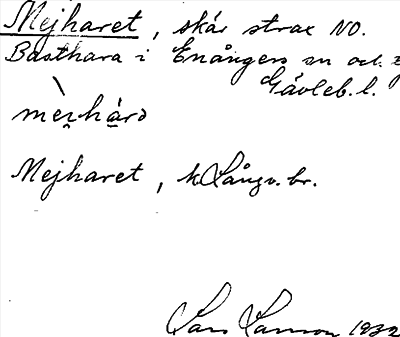 Mejharet, skär strax NO.
Basthara i Enångers sn och
Gävleb. l.
Mejharet, k Långv. br.
Lars Larsson 1932